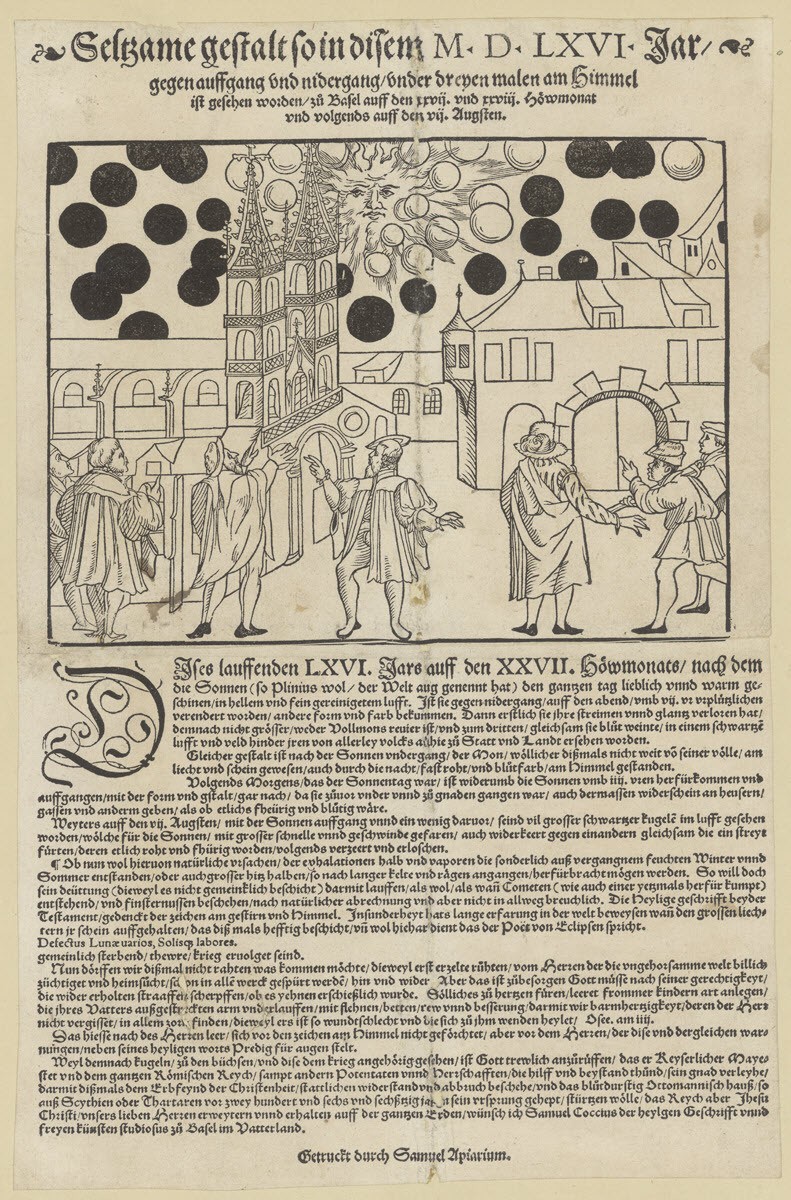 Seltzame gestalt so in disem M. D. LXVI. Jar/
gegen auffgang vnd nidergang/vnder dreyen malen am Himmel
ist gesehen worden/zů Basel auff den xxvij. vnd xxviij. Höwmonat
vnd volgends auff den vij. Augsten.
DIses lauffenden LXVI. Jars auff den XXVII. Höwmonats/ nach dem
die Sonnen (so Plinius wol/ der Welt aug genennt hat) den gantzen tag lieblich vnnd warm ge-
schinen/in hellem vnd fein gereinigetem lufft. Ist sie gegen nidergang/auff den abend/vmb vij. vr vrplützlichen
verendert worden/ andere form vnd farb bekummen. Dann erstlich sie jhre streimen vnnd glantz verloren hat/
demnach nicht grösser/weder Vollmons reuier ist/vnd zum dritten/gleichsam sie blůt weinte/in einem schwartzē
lufft vnd veld hinder jren von allerley volcks alhie zů Statt vnd Landt ersehen worden.
Gleicher gestalt ist nach der Sonnen vndergang/ der Mon/ wöllicher dißmals nicht weit vō seiner völle/ am
liecht vnd schein gewesen/auch durch die nacht/fast roht/vnd blůtfarb/am Himmel gestanden.
Volgends Morgens/das der Sonnentag war/ist widerumb die Sonnen vmb iiij. vren herfürkommen vnd
auffgangen/mit der form vnd gstalt/gar nach/ da sie zůuor vnder vnnd zů gnaden gangen war/ auch dermassen widerschein an heusern/
gassen vnd anderm geben/als ob etlichs fheürig vnd blůtig wäre.
Weyters auff den vij. Augsten/ mit der Sonnen auffgang vnnd ein wenig daruor/ seind vil grosser schwartzer kugelē im lufft gesehen
worden/wölche für die Sonnen/ mit grosser schnelle vnnd geschwinde gefaren/ auch widerkeert gegen einandern gleichsam die ein streyt
fürten/deren etlich roht vnd fhürig worden/volgends verzeert vnd erloschen.
¶ Ob nun wol hieruon natürliche vrsachen/ der exhalationen halb vnd vaporen die sonderlich auß vergangnem feuchten Winter vnnd
Sommer entstanden/oder auchgrosser hitz halben/so nach langer kelte vnd rägen angangen/herfürbracht mögen werden. So will doch
sein deüttung (dieweyl es nicht gemeinklich beschicht) darmit lauffen/als wol/als wañ Cometen (wie auch einer yetzmals herfür kumpt)
entstehend/vnd finsternussen beschehen/nach natürlicher abrechnung vnd aber nicht in allweg breuchlich. Die Heylige geschrifft beyder
Testament/gedenckt der zeichen am gestirn vnd Himmel. Insunderheyt hats lange erfarung in der welt beweysen wañ den grossen liech-
tern jr schein auffgehalten/das diß mals hefftig beschicht/vñ wol hiehar dient das der Poët von Eclipsen spricht.
Defectus Lunæ uarios, Solisq; labores.
gemeinlich sterbend/ thewre/ krieg eruolget seind.
Nun dörffen wir dißmal nicht rahten was kommen möchte/dieweyl erst erzelte růhten/vom Herren der die vngehorsamme welt billich
züchtiget vnd heimsůcht/schon in allē werck gespürt werdē/ hin vnd wider. Aber das ist zůbesorgen Gott müsse nach seiner gerechtigkeyt/
die wider erholten straaffen scherpffen/ob es yehnen erschießlich wurde. Sölliches zů hertzen füren/leeret frommer kindern art anlegen/
die jhres Vatters außgestreckten arm vnd erlauffen/mit flehnen/betten/rew vnnd besserung/darmit wir barmhertzigkeyt/deren der Herr
nicht vergisset/ in allem zorn finden/dieweyl ers ist so wundtschlecht vnd die sich zů jhm wenden heylet/ Osee. am iiij.
Das hiesse nach des Herren leer/sich vor den zeichen am Himmel nicht geförchtet/ aber vor dem Herren/ der dise vnd dergleichen war-
nungen/neben seines heyligen worts Predig für augen stelt.
Weyl demnach kugeln/zů den büchsen/vnd dise dem krieg angehörig gesehen/ist Gott trewlich anzůrüffen/das er Keyserlicher Maye-
stet vnd dem gantzen Römischen Reych/sampt andern Potentaten vnnd Herrschafften/die hilff vnd beystand thünd/sein gnad verleyhe/
darmit dißmals dem Erbfeynd der Christenheit/stattlichen widerstand vnd abbruch beschehe/vnd das blůtdurstig Ottomannisch hauß/so
auß Scythien oder Thartaren vor zwey hundert vnd sechs vnd sechßtzig jar sein vrsprung gehept/stürtzen wölle/das Reych aber Jhesu
Christi/vnsers lieben Herren erweytern vnnd erhalten auff der gantzen Erden/wünsch ich Samuel Coccius der heylgen Geschrifft vnnd
freyen künsten studiosus zů Basel im Vatterland.
Getruckt durch Samuel Apiarium.